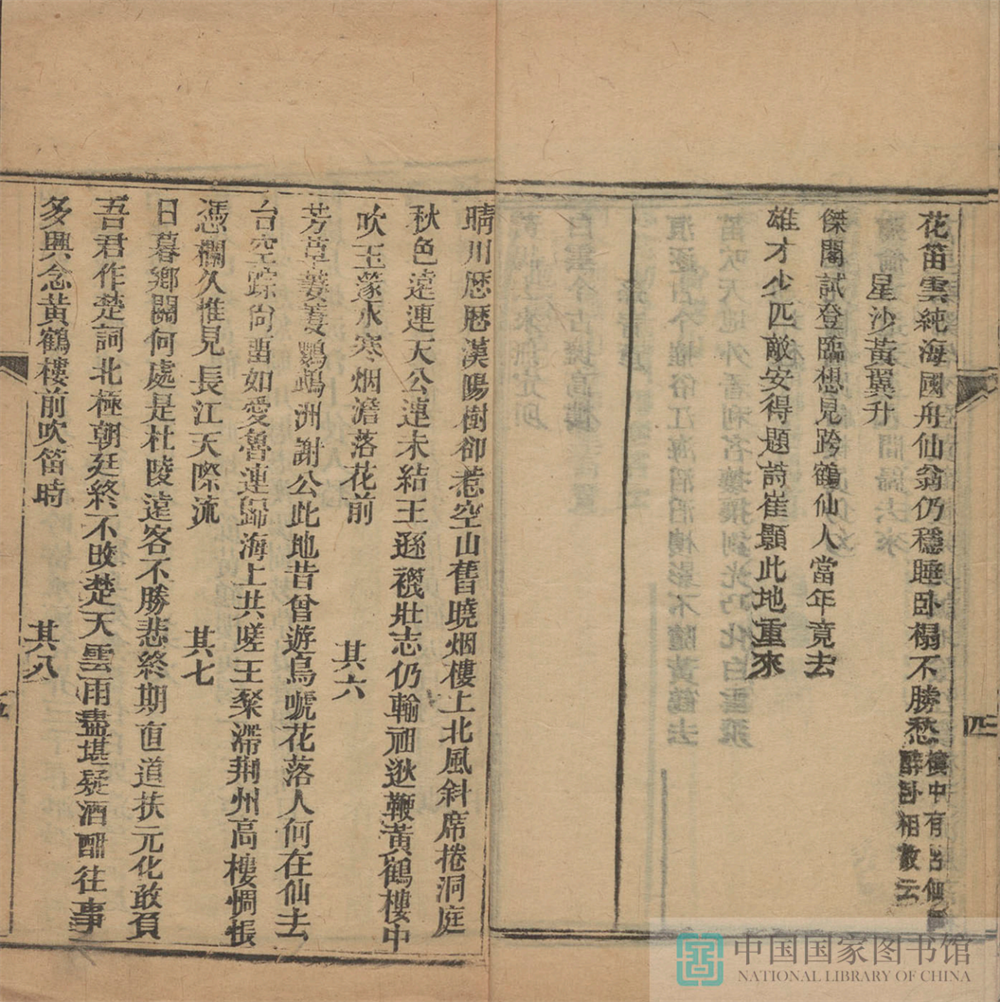 花笛雲純海國舟仙翁仍穩睡卧榻不勝愁樓中有呂仙
醉卧相故云
星沙黃翼升
傑閣試登臨想見跨鶴仙人當年竟去
雄才少匹敵安得題詩崔顥此地重來
四
晴川歷歷漢陽樹卻惹空山舊曉烟樓上北風斜席捲洞庭
秋色遠連天公連未結王遜襪壯志仍輸祖逖鞭黃鶴樓中
吹玉篴永寒烟澹落花前
其六
芳草萋萋鸚鵡洲謝公此地昔曾遊鳥號花落人何在仙去
台空踪尚畱如愛魯連歸海上共嗟王粲滯荆州高樓惆悵
憑欄久惟見長江天際流
其七
日暮鄉關何處是杜陵遠客不勝悲終期直道扶元化敢負
吾君作楚詞北極朝廷終不改楚天雲雨盡堪疑酒酣往事
多興念黃鶴樓前吹笛時
其八
五
中国国家图书馆
NATIONAL LIBRARY OF CHINA